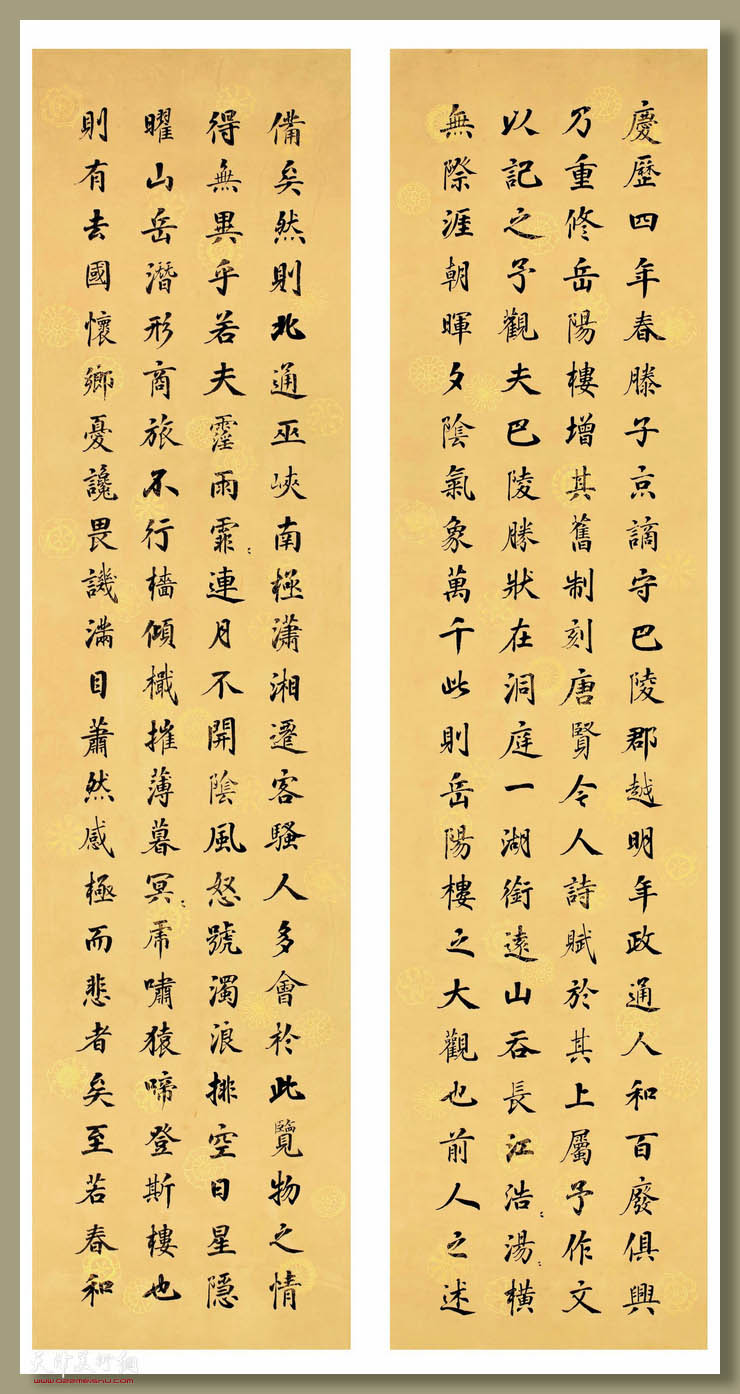 慶歷四年春滕子京謫守巴陵郡越明年政通人和百廢俱興
乃重修岳陽樓增其舊制刻唐賢今人詩賦於其上屬予作文
以記之予觀夫巴陵勝狀在洞庭一湖銜遠山吞長江浩〻湯〻橫
無際涯朝暉夕陰氣象萬千此則岳陽樓之大觀也前人之述
備矣然則北通巫峽南極瀟湘遷客騷人多會於此覽物之情
得無異乎若夫霪雨霏〻連月不開陰風怒號濁浪排空日星隱
曜山岳潛形商旅不行檣傾檝摧薄暮冥〻虎嘯猿啼登斯樓也
則有去國懷鄉憂讒畏譏滿目蕭然感極而悲者矣至若春和
天津美术網
www.022meishu.com